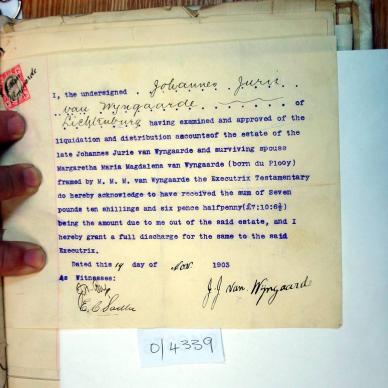 I, the undersigned . Johannes Jurie .
van Wyngaarde . . . . . . . . of
Lichtenburg having examined and approved of the
liquidation and distribution accountsof the estate of the
late Johannes Jurie van Wyngaarde and surviving spouse
Margaretha Maria Magdalena van Wyngaarde (born du Plooy)
framed by M. M. M. van Wyngaarde the Executrix Testamentary
do hereby acknowledge to have received the sum of Seven
pounds ten shillings and six pence halfpenny(£7:10:6½)
being the amount due to me out of the said estate, and I
hereby grant a full discharge for the same to the said
Executrix.
Dated this 14 day of Nov. 1903
As Witnesses:
J. J. van Wyngaarde
E. C.
0/4339